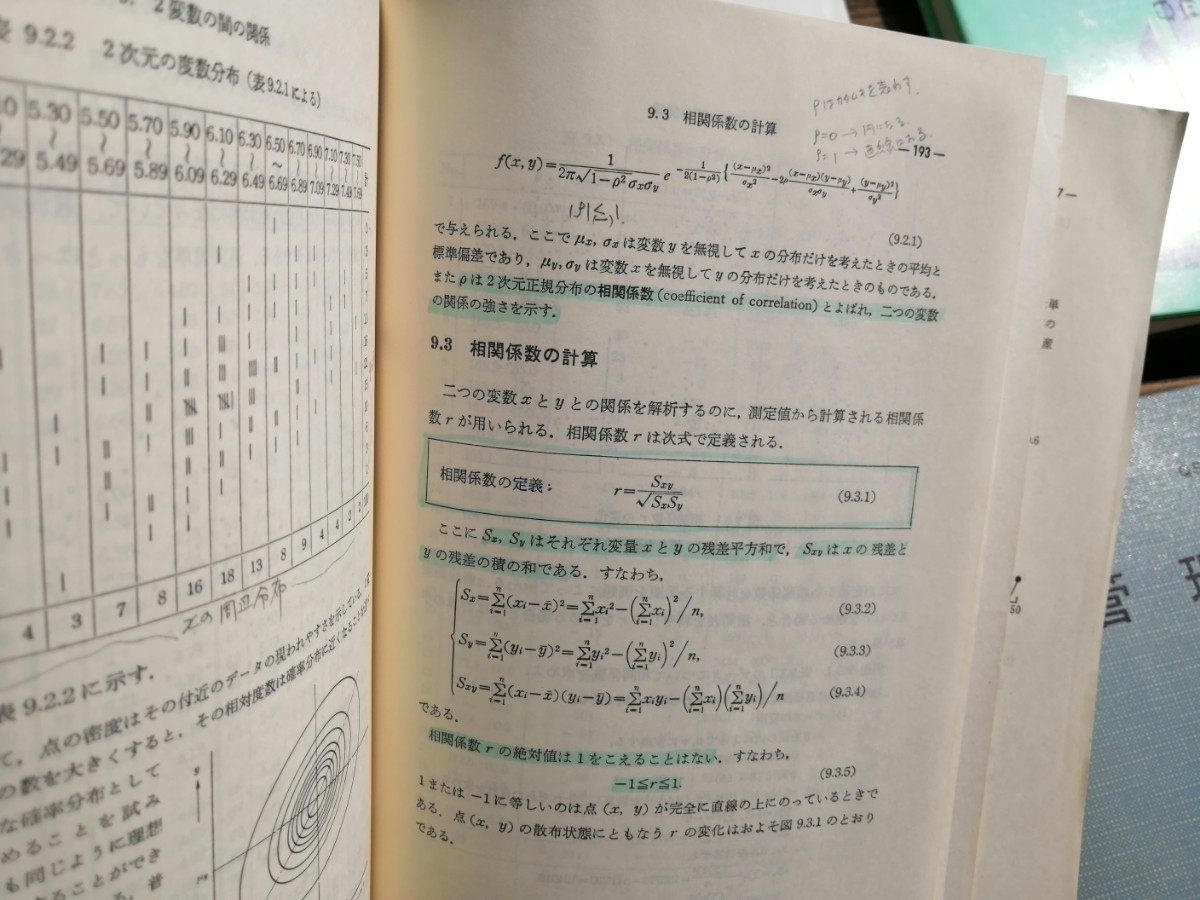 2変数の間の関係
表 9.2.2 2次元の度数分布（表9.2.1による）
5.30 5.50 5.70 5.90 6.10 6.30 6.50 6.70 6.90 7.10 7.30 7.50 計
〜 〜 〜 〜 〜 〜 〜 〜 〜 〜 〜 〜
29 5.49 5.69 5.89 6.09 6.29 6.49 6.69 6.89 7.09 7.29 7.49 7.69
4 3 7 8 16 18 13 8 9 4 4 2 2
xの周辺分布
表 9.2.2 に示す．
て，点の密度はその付近のデータの現われやすさを示している．
の数を大きくすると，その相対度数は確率分布に近くなること
な確率分布として
めることを試み
も同じように理想
ることができ
る．普
y
9.3 相関係数の計算
—193—
ρ=0 → 円になる
ρ=1 → 直線になる
f(x, y)=1/(2π√(1−ρ²)σxσy) e^−1/(2(1−ρ²)){(x−μx)²/σx²−2ρ(x−μx)(y−μy)/σxσy+(y−μy)²/σy²}
|ρ|≦1.
(9.2.1)
で与えられる．ここで μx, σx は変数 y を無視して x の分布だけを考えたときの平均と
標準偏差であり，μy, σy は変数 x を無視して y の分布だけを考えたときのものである．
また ρ は2次元正規分布の相関係数 (coefficient of correlation) とよばれ，二つの変数
の関係の強さを示す．
9.3 相関係数の計算
二つの変数 x と y との関係を解析するのに，測定値から計算される相関係
数 r が用いられる．相関係数 r は次式で定義される．
相関係数の定義： r=Sxy/√SxSy (9.3.1)
ここに Sx, Sy はそれぞれ変量 x と y の残差平方和で，Sxy は x の残差と
y の残差の積の和である．すなわち，
Sx=∑(i=1..n)(xi−x̄)²=∑(i=1..n)xi²−(∑(i=1..n)xi)²/n, (9.3.2)
Sy=∑(i=1..n)(yi−ȳ)²=∑(i=1..n)yi²−(∑(i=1..n)yi)²/n, (9.3.3)
Sxy=∑(i=1..n)(xi−x̄)(yi−ȳ)=∑(i=1..n)xiyi−(∑(i=1..n)xi)(∑(i=1..n)yi)/n (9.3.4)
である．
相関係数 r の絶対値は1をこえることはない．すなわち，
−1≦r≦1. (9.3.5)
1または −1 に等しいのは点 (x, y) が完全に直線の上にのっているときで
ある．点 (x, y) の散布状態にともなう r の変化はおよそ図 9.3.1 のとおり
である．
7—
単の産
50
管 理